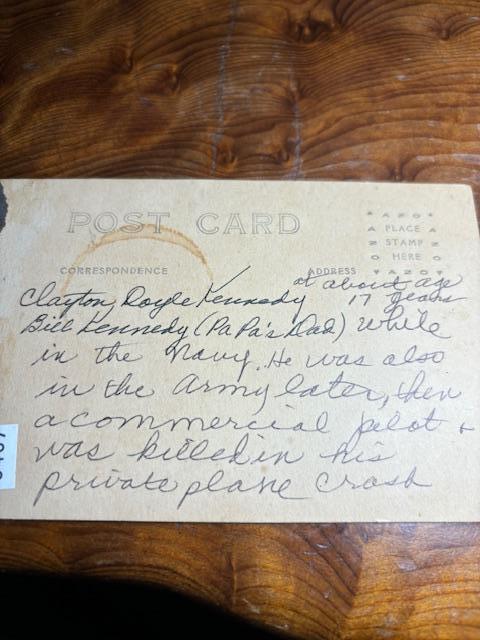 POST CARD
* A Z O *
A PLACE A
Z STAMP Z
O HERE O
* A Z O *
CORRESPONDENCE
ADDRESS
at about age
17 years
Clayton Doyle Kennedy
Bill Kennedy (PaPa's Dad) while
in the Navy. He was also
in the Army later, then
a commercial pilot +
was killed in his
private plane crash